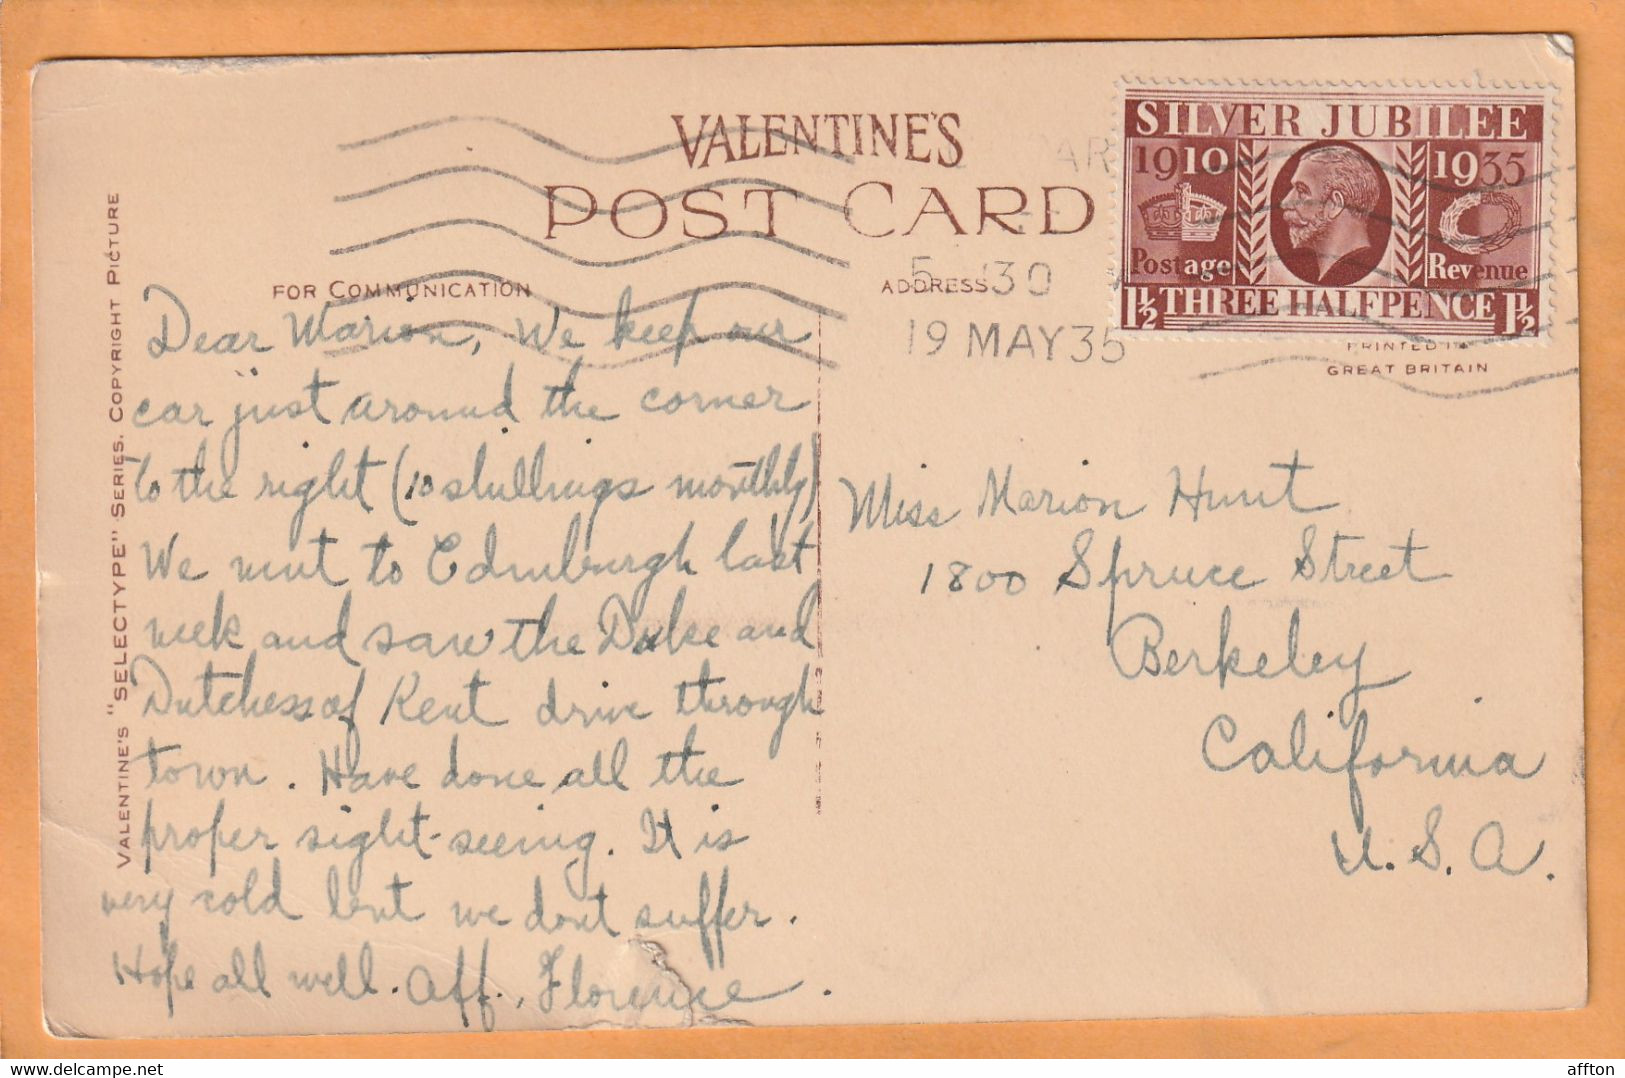 VALENTINE'S
POST CARD
FOR COMMUNICATION
ADDRESS
PRINTED IN
GREAT BRITAIN
VALENTINE'S "SELECTYPE" SERIES. COPYRIGHT PICTURE
SILVER JUBILEE
1910 1935
Postage Revenue
1½ THREE HALFPENCE 1½
AR
5 - 30
19 MAY 35
Dear Marion, We keep our
car just around the corner
to the right (10 shillings monthly)
We went to Edinburgh last
week and saw the Duke and
Dutchess of Kent drive through
town. Have done all the
proper sight-seeing. It is
very cold but we dont suffer.
Hope all well. Aff., Florence.
Miss Marion Hunt
1800 Spruce Street
Berkeley
California
U. S. A.
affton